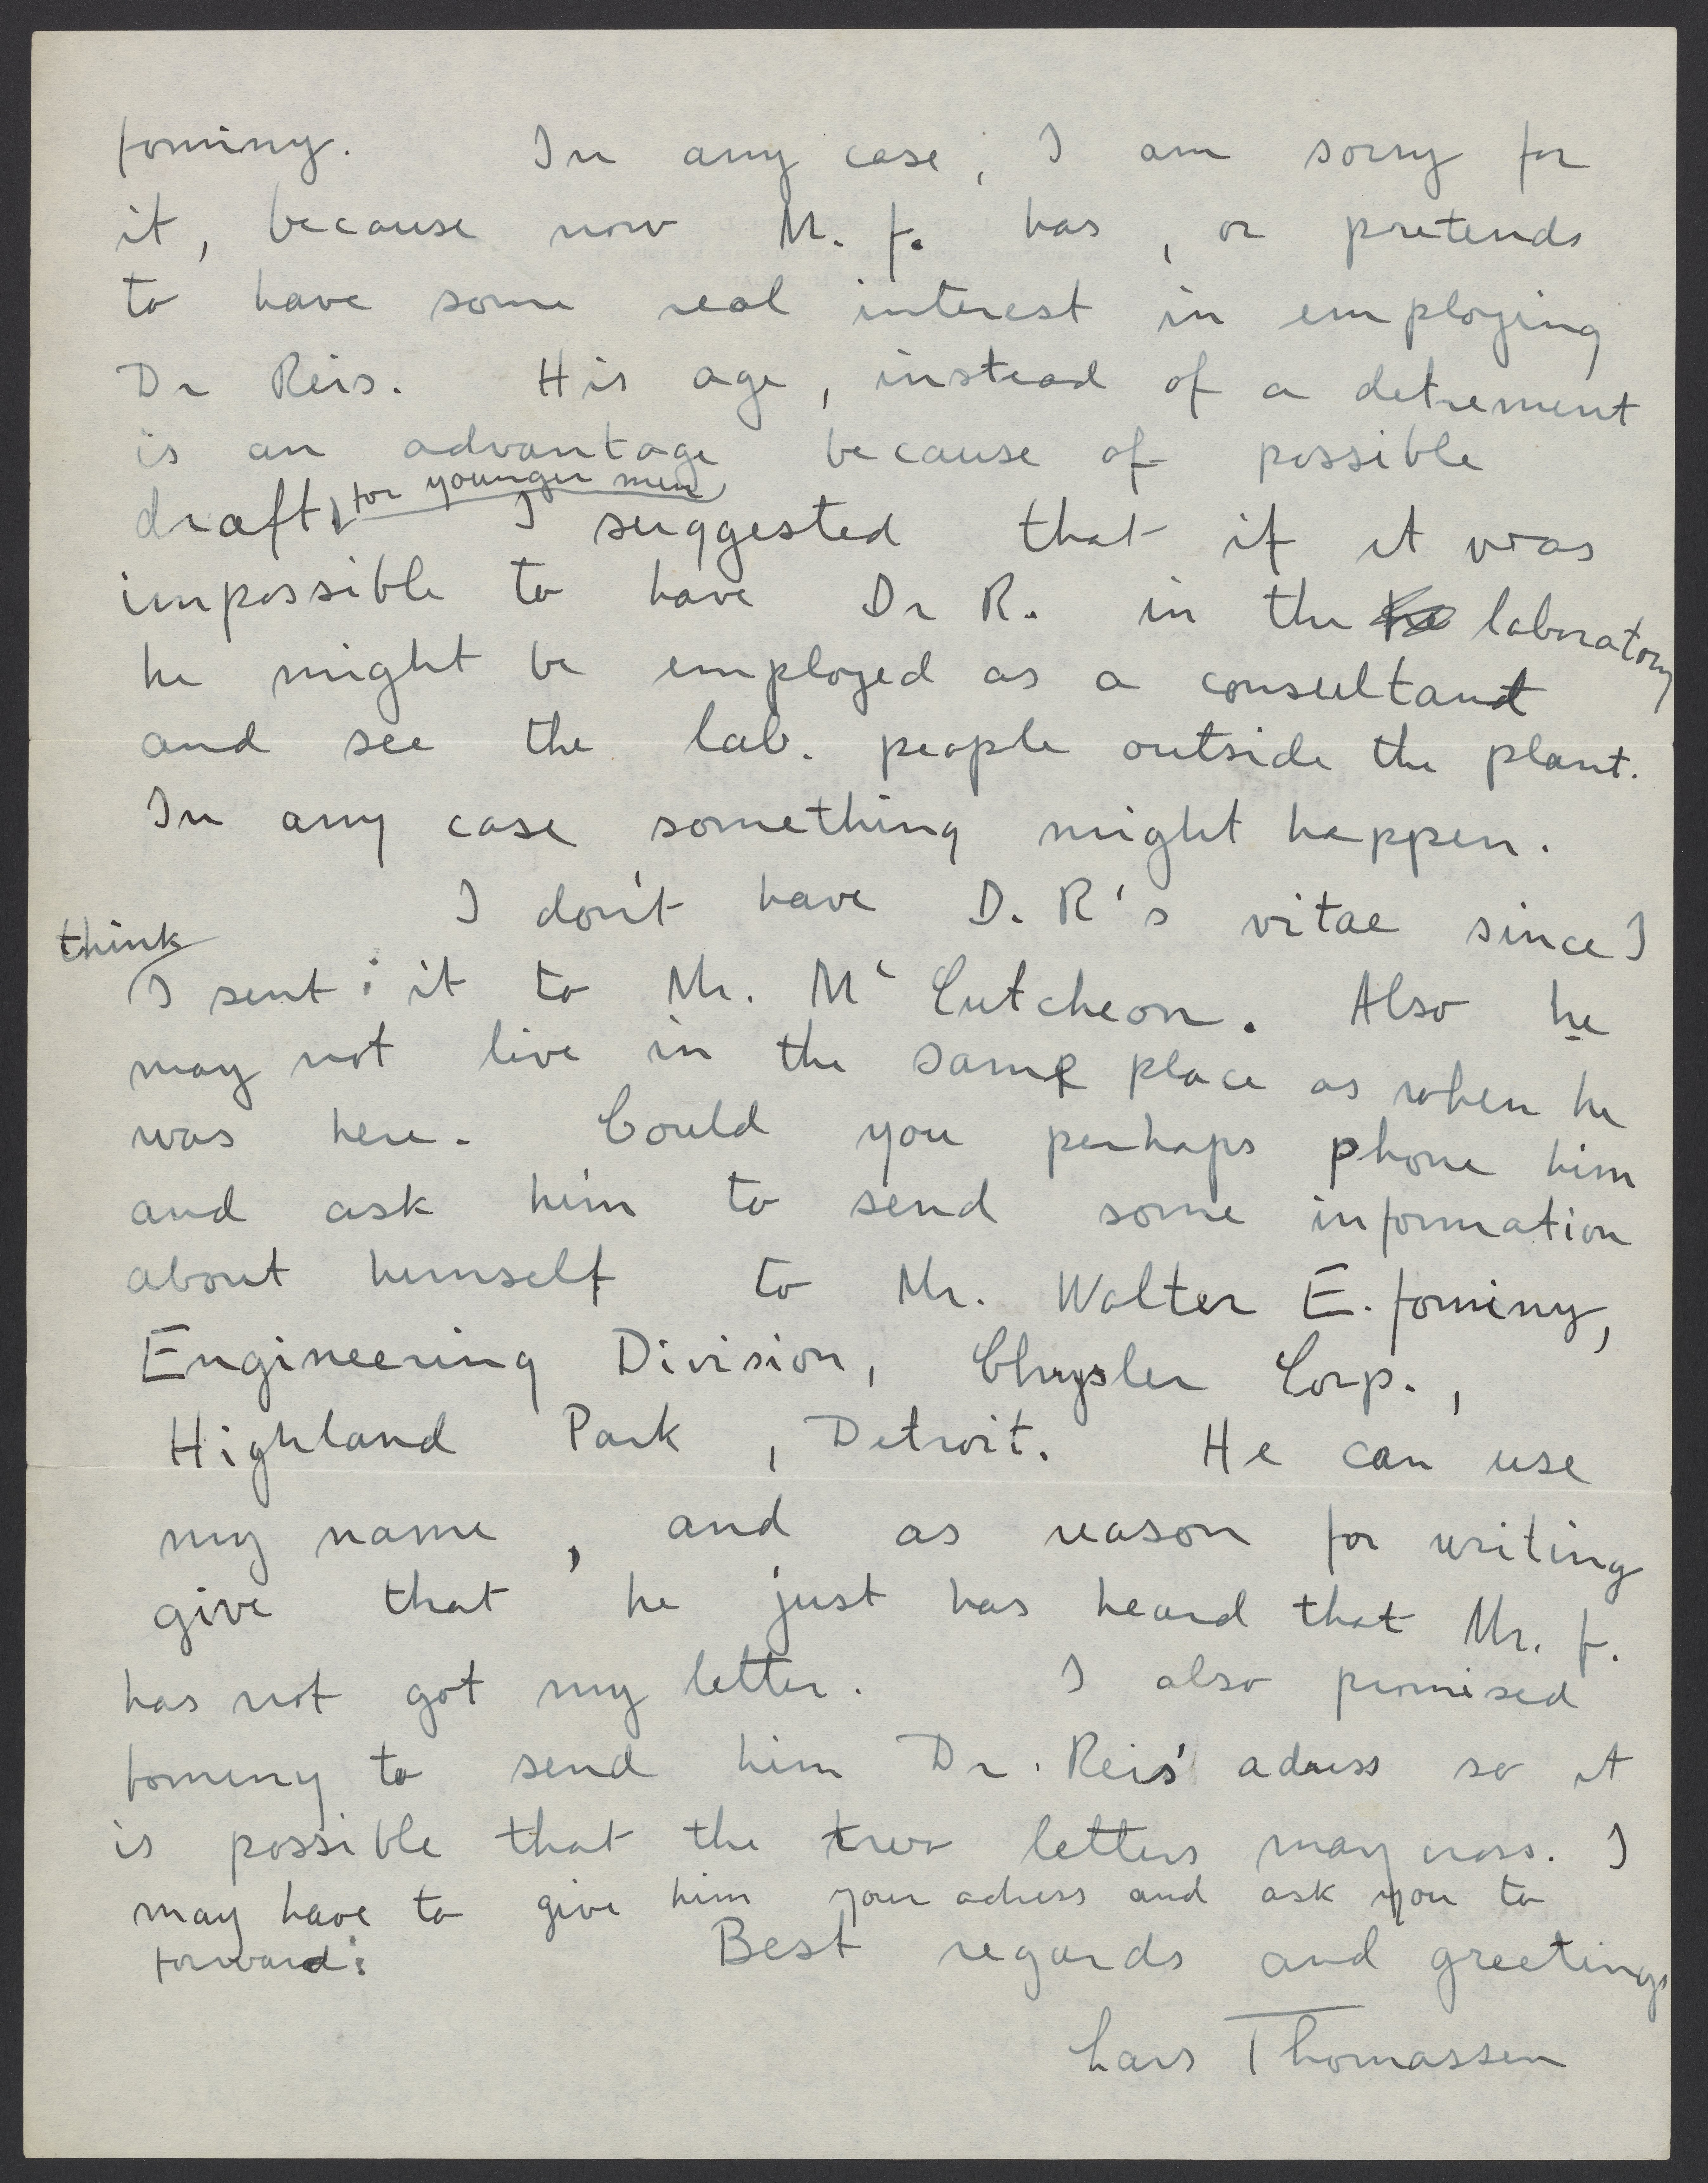 Jominy. In any case, I am sorry for
it, because now M. J. has, or pretends
to have some real interest in employing
Dr Reis. His age, instead of a detrement
is an advantage because of possible
draft, for younger men I suggested that if it was
impossible to have Dr R. in the laboratory
he might be employed as a consultant
and see the lab. people outside the plant.
In any case something might happen.
I don't have D. R's vitae since I
think
I sent it to Mr. Mc Cutcheon. Also he
may not live in the same place as when he
was here. Could you perhaps phone him
and ask him to send some information
about himself to Mr. Walter E. Jominy,
Engineering Division, Chrysler Corp.,
Highland Park, Detroit. He can use
my name, and as reason for writing
give that he just has heard that Mr. J.
has not got my letter. I also promised
Jominy to send him Dr. Reis' adress so it
is possible that the two letters may cross. I
may have to give him your adress and ask you to
forward:
Best regards and greetings
Lars Thomassen